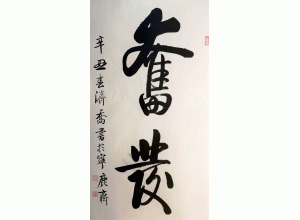 奮發
辛丑春濟喬書於寧鹿齋